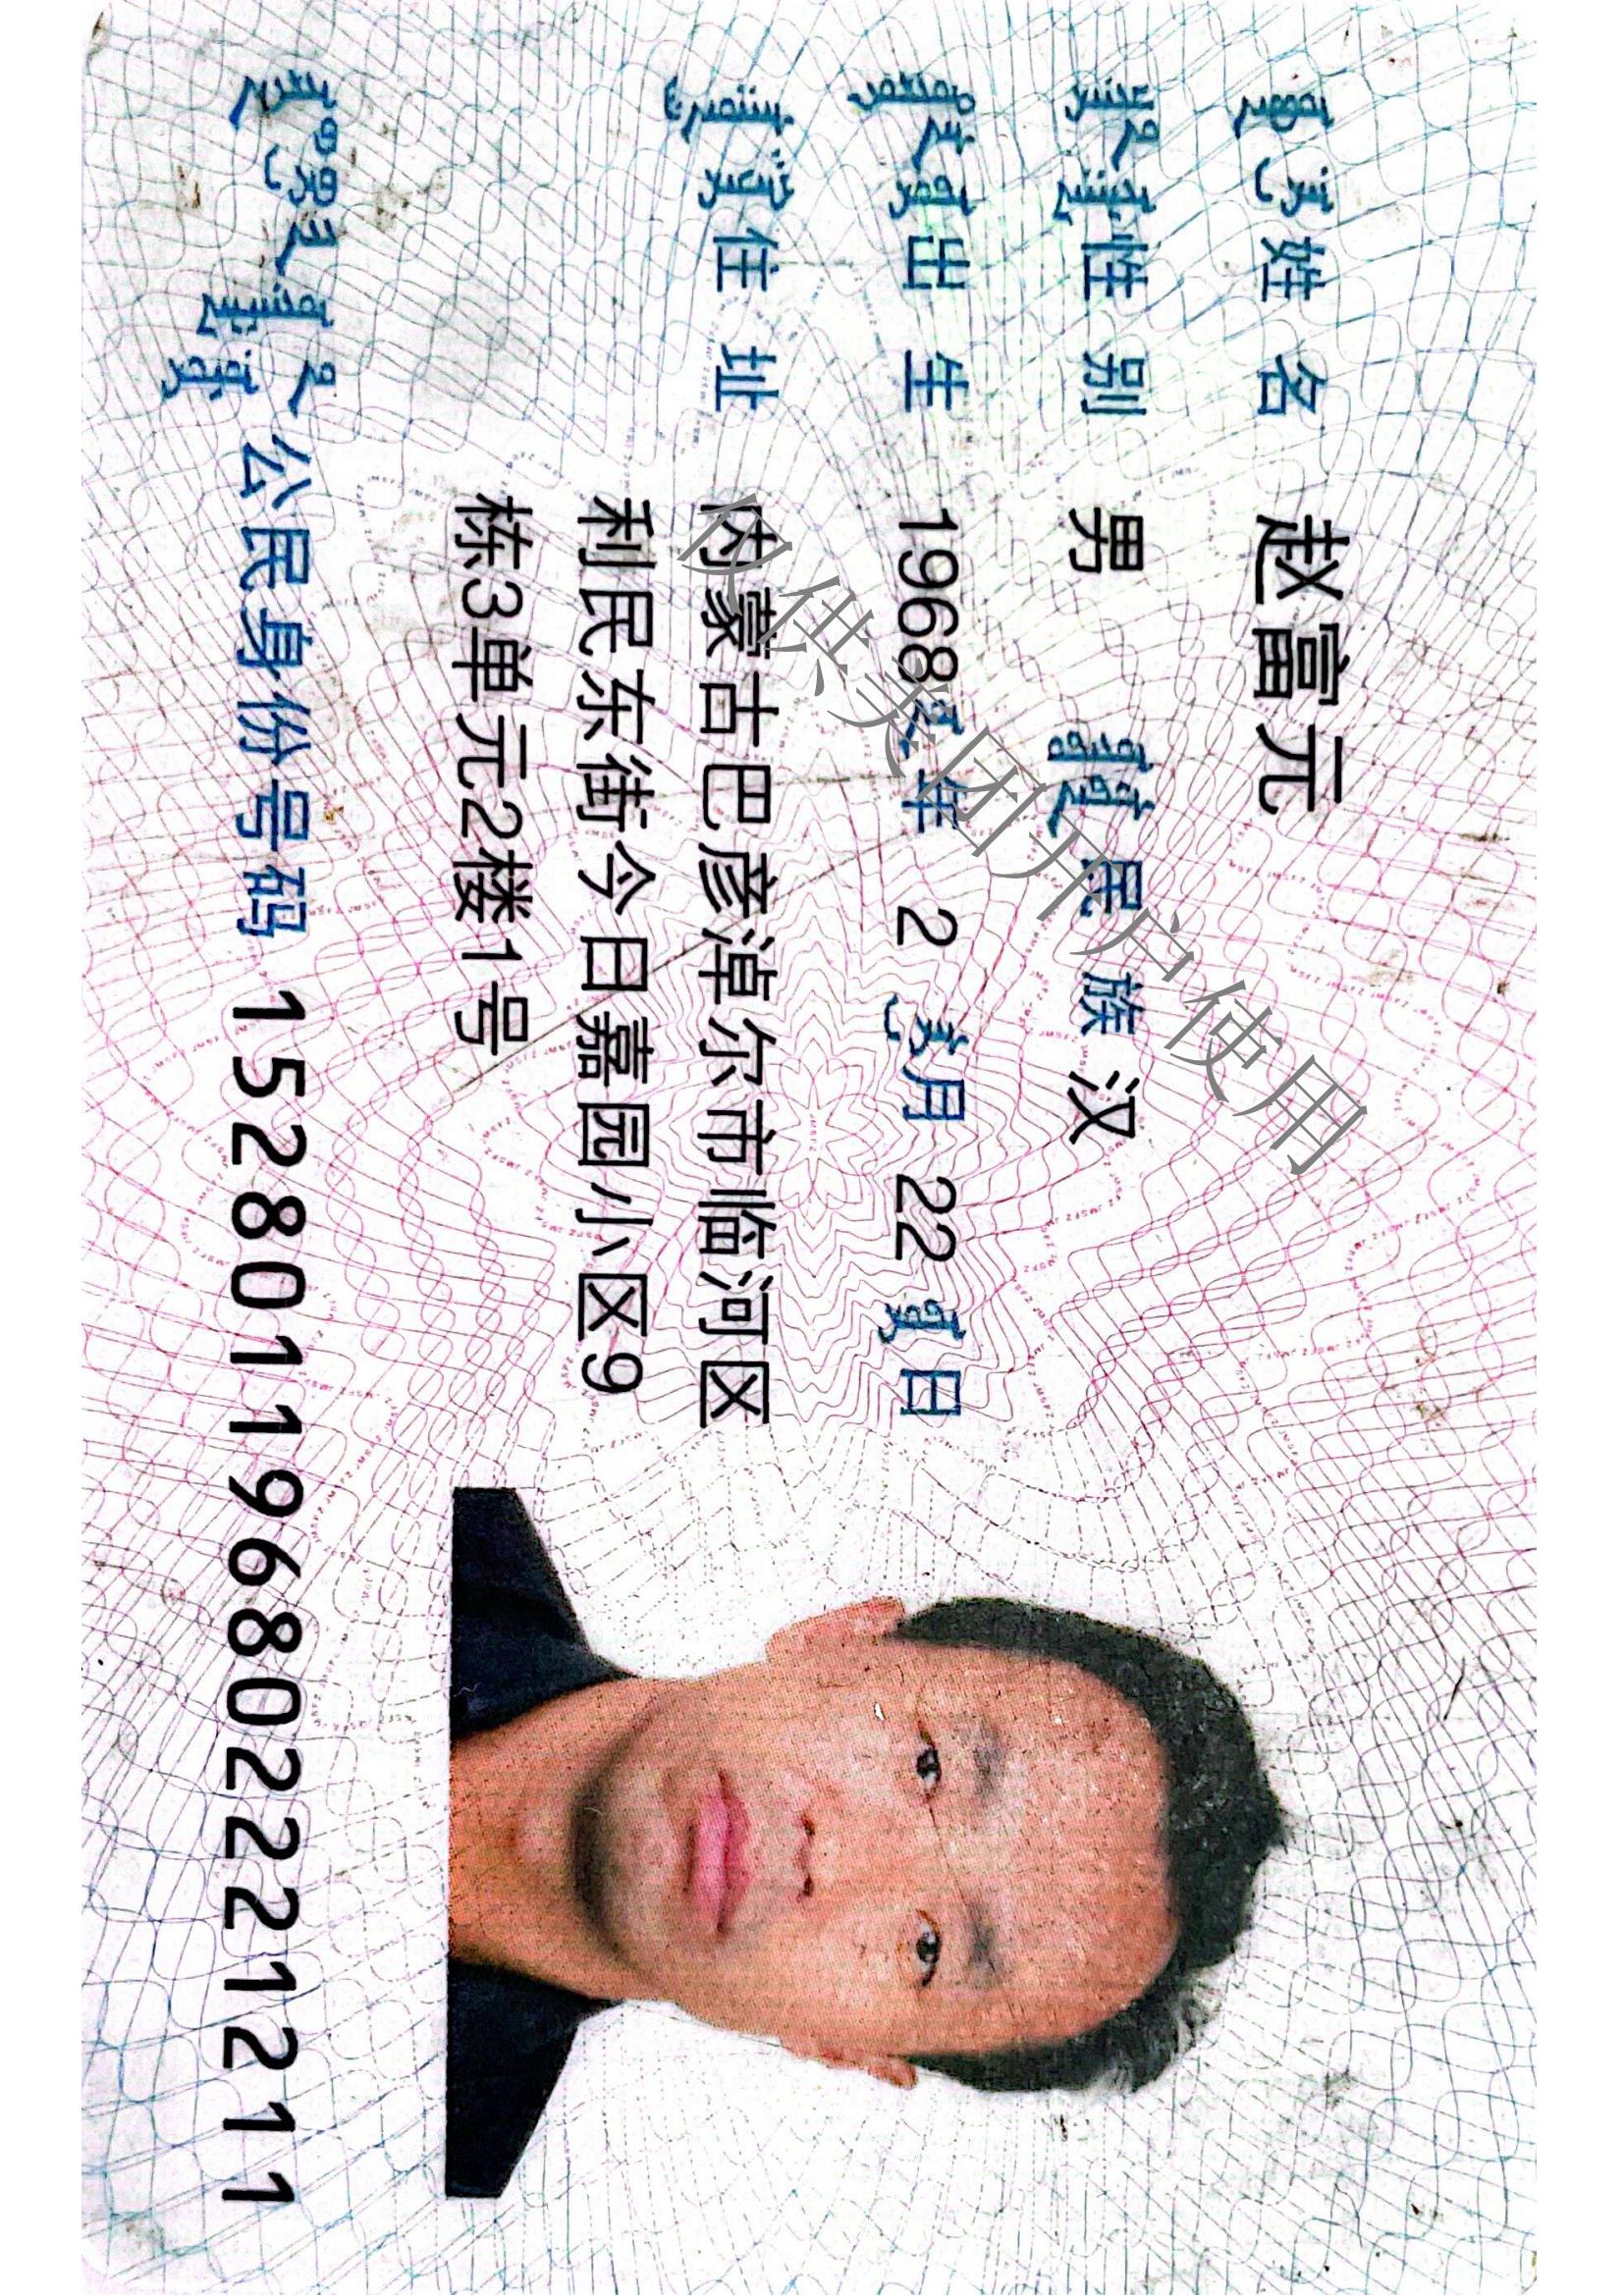 姓名 赵富元
性别 男 民族 汉
出生 1968年 2 月 22 日
住址 内蒙古巴彦淖尔市临河区
利民东街今日嘉园小区9
栋3单元2楼1号
公民身份号码 152801196802221211
仅供美团开户使用